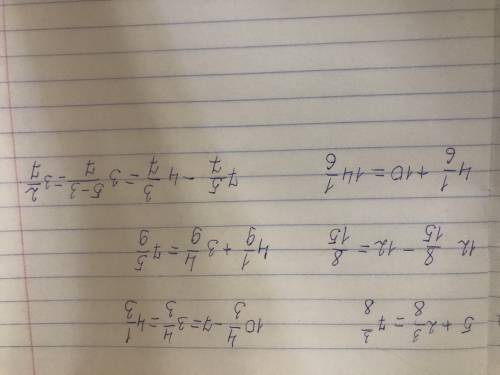 5 + 2 3/8 = 7 3/8   10 4/3 - 7 = 3 4/3 = 4 1/3
12 8/15 - 12 = 8/15   4 1/9 + 3 4/9 = 7 5/9
4 1/6 + 10 = 14 1/6   7 5/7 - 4 3/7 = 3 5-3/7 = 3 2/7